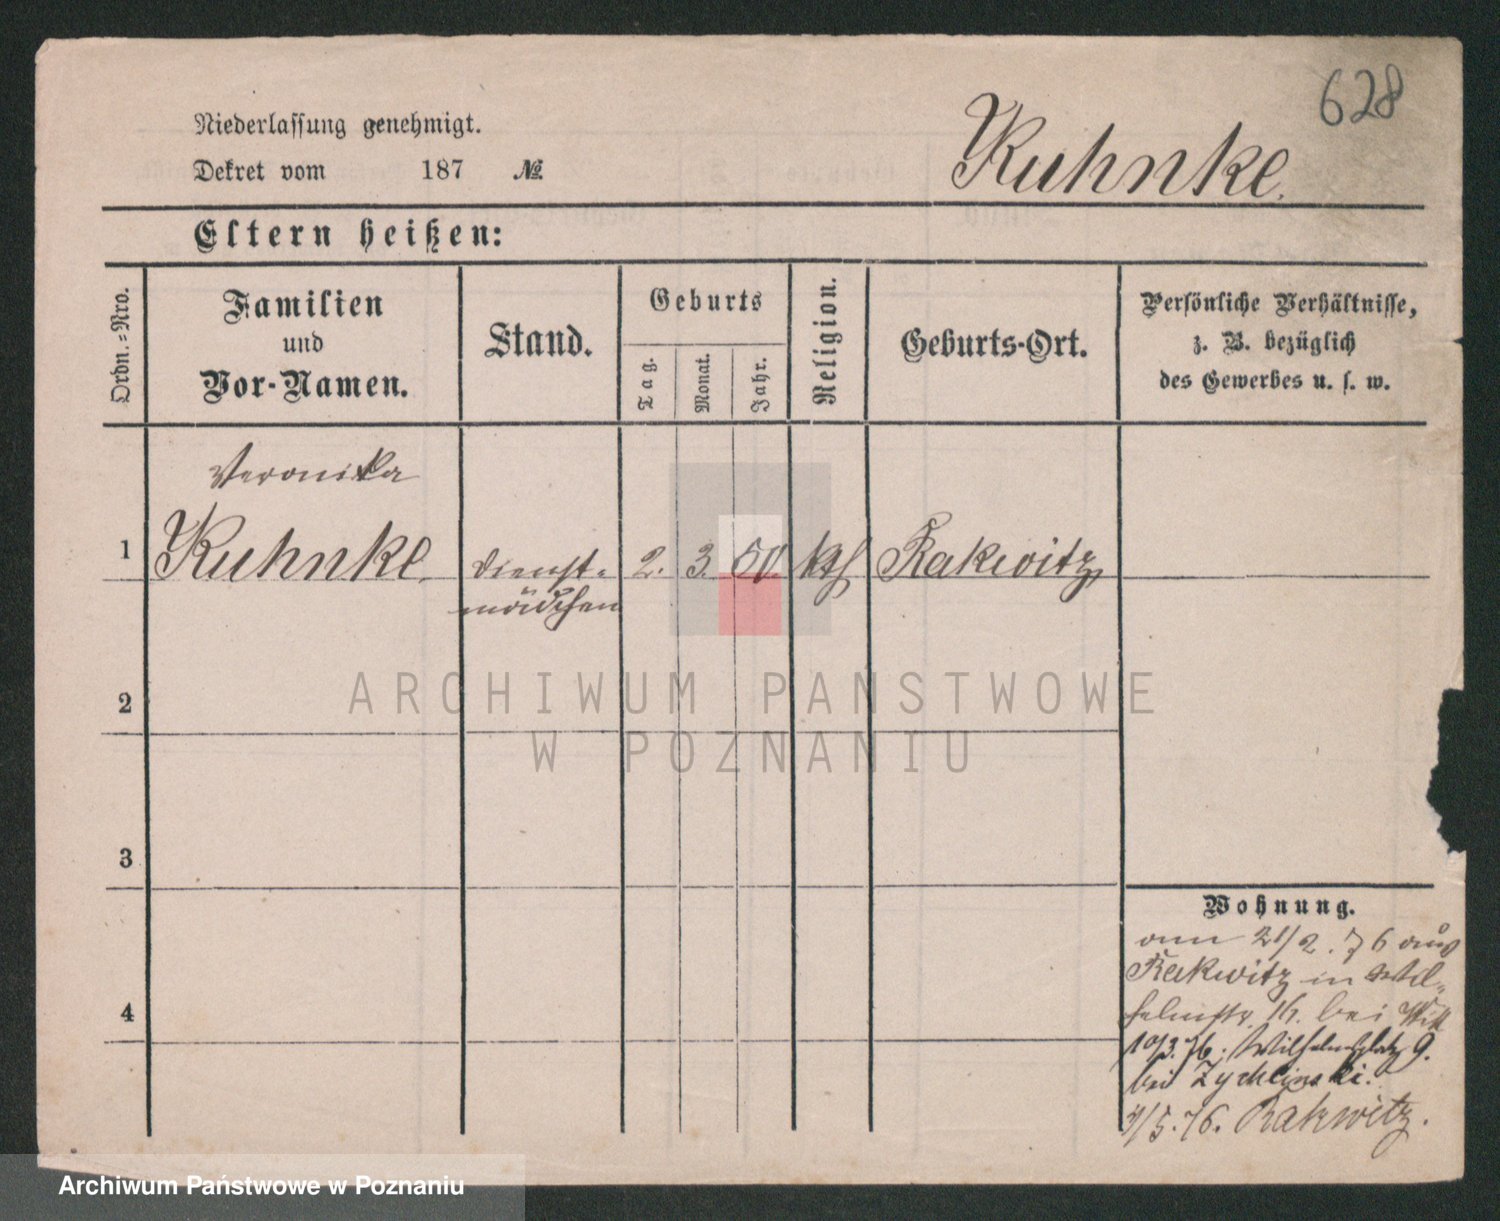 628
Niederlassung genehmigt.
Kuhnke.
Dekret vom 187 №
Eltern heißen:
Ordn.-Nro.
Familien
und
Vor-Namen.
Stand.
Geburts
Tag.
Monat.
Jahr.
Religion.
Geburts-Ort.
Persönliche Verhältnisse,
z. B. bezüglich
des Gewerbes u. s. w.
Veronika
1 Kuhnke. Dienst- 2. 3. 50 kth Rakwitz
mädchen
2
3
4
Wohnung.
am 21/2. 76 aus
Rakwitz in Wil-
helmstr. 16. bei
10/3. 76. Wilhelmsplatz 9.
bei Zychlinski.
/5. 76. Rakwitz.
ARCHIWUM PAŃSTWOWE
W POZNANIU
Archiwum Państwowe w Poznaniu